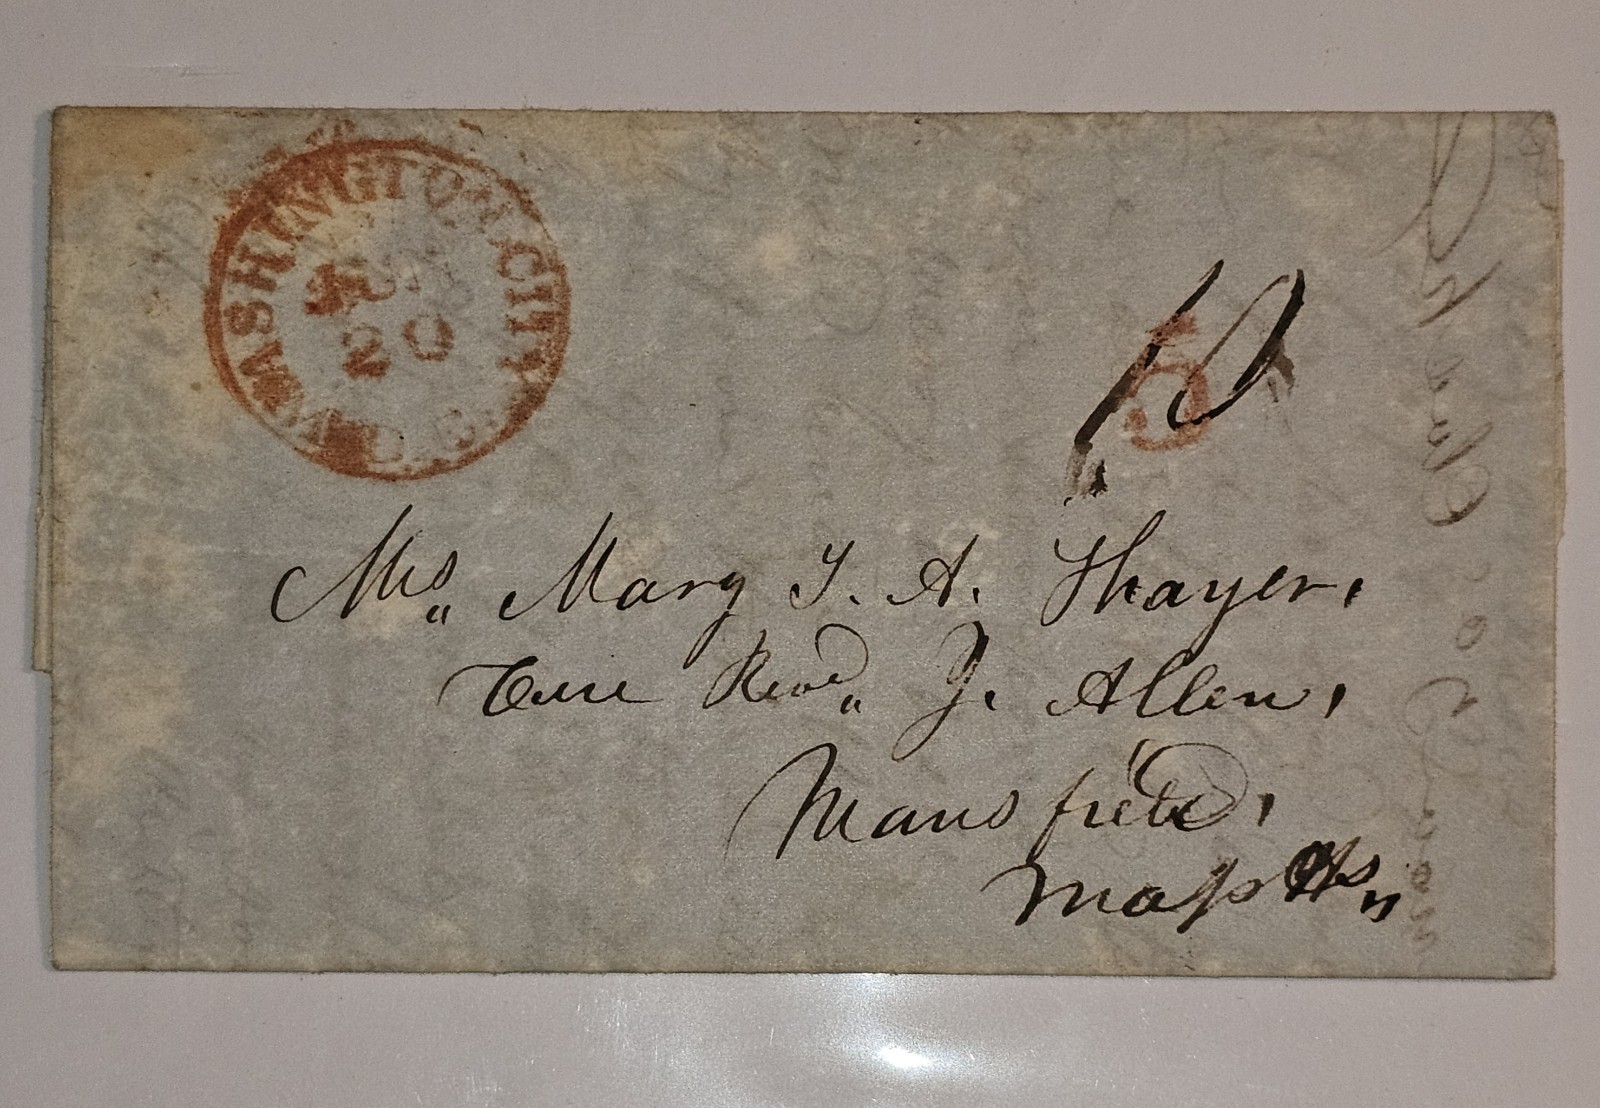 WASHINGTON CITY
JUN
20
D.C.
10
5
Mrs. Mary T. A. Thayer,
Care Revd. J. Allen,
Mansfield,
Masstts,